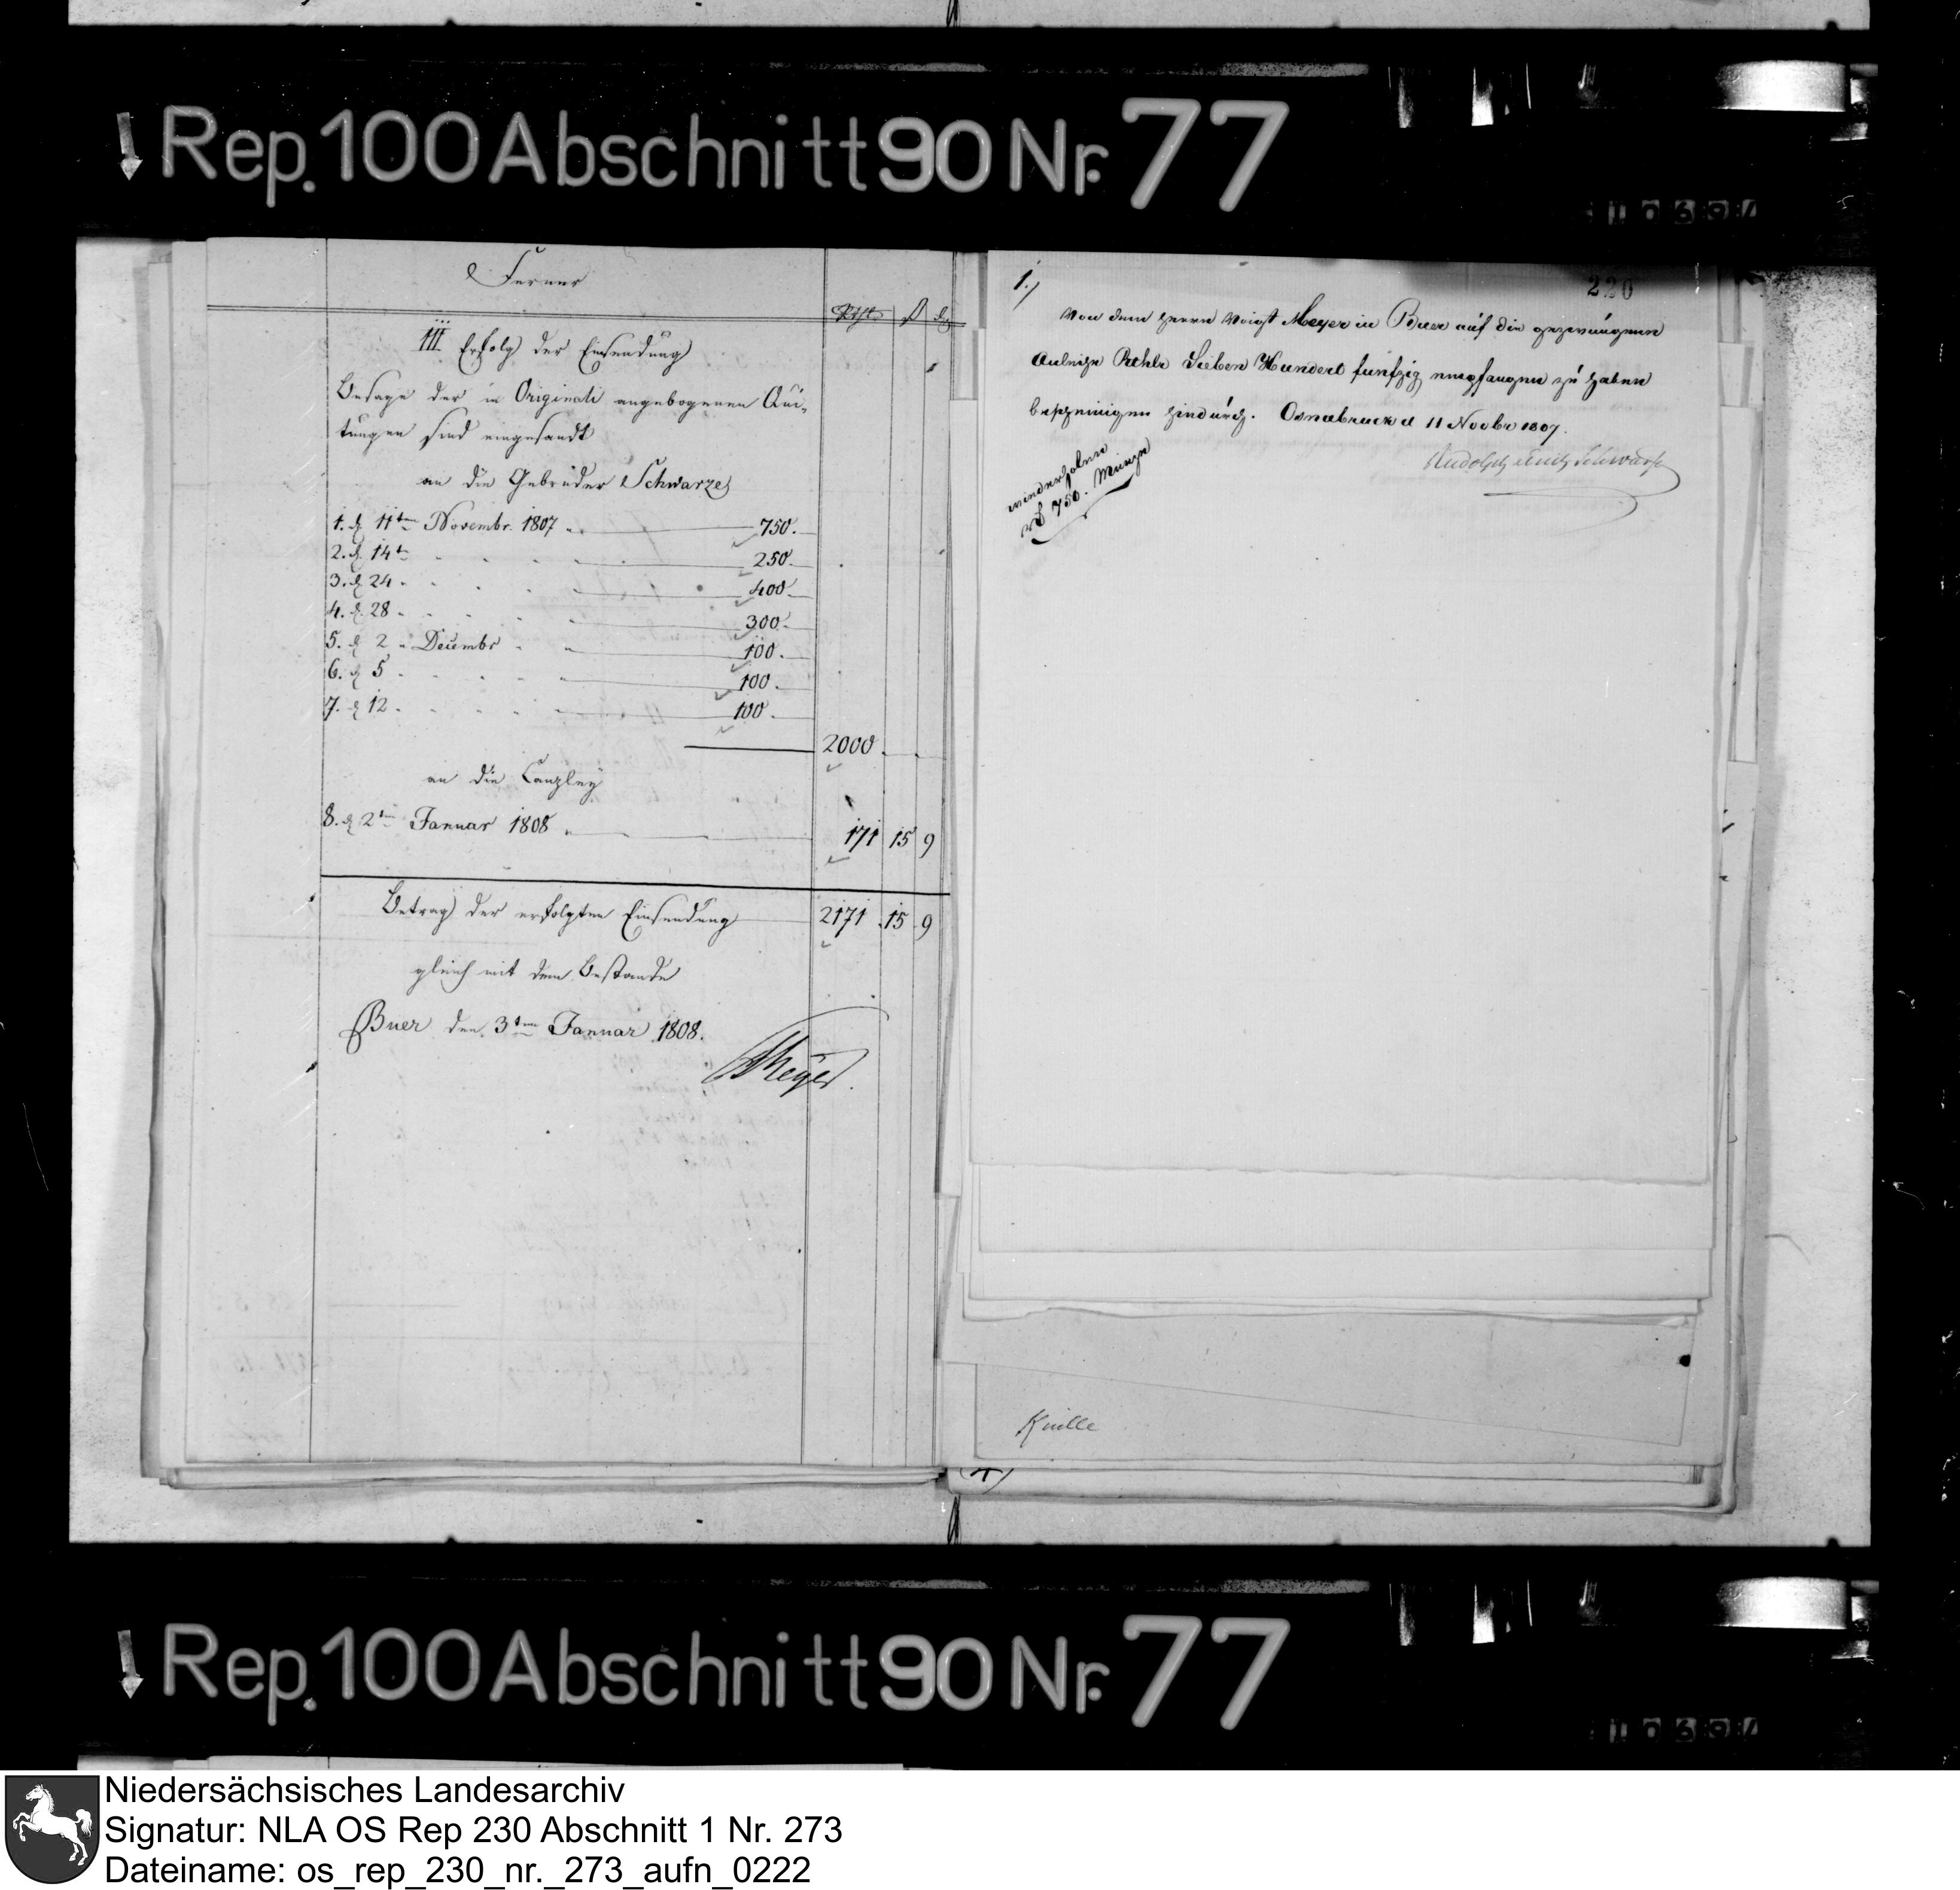 Rep. 100 Abschnitt 90 Nr. 77
Ferner
Rthlr ß d
III Erfolg der Einsendung
Besage der in Originali angebogenen Qui-
tungen sind eingesandt
an die Gebrüder Schwarze
1. d 11ten Novembr. 1807 750.
2. d 14t 250.
3. d 24 400.
4. d 28 300.
5. d 2 Decembr 100.
6. d 5 100.
7. d 12 100.
2000
an die Canzley
8. d 2ten Januar 1808 171 15 9
Betrag der erfolgten Einsendung 2171 15 9
gleich mit dem Bestande
Buer den 3ten Januar 1808.
Meyer.
220
1.)
Von dem Herrn Voigt Meyer in Buer auf die gezwungene
Anleihe Rthlr Sieben Hundert funfzig empfangen zu haben
bescheinigen hiedurch. Osnabruck d 11 Novbr 1807.
Rudolph Schwartze
wiederholen
750. Münze
Knille
Rep. 100 Abschnitt 90 Nr. 77
Niedersächsisches Landesarchiv
Signatur: NLA OS Rep 230 Abschnitt 1 Nr. 273
Dateiname: os_rep_230_nr._273_aufn_0222